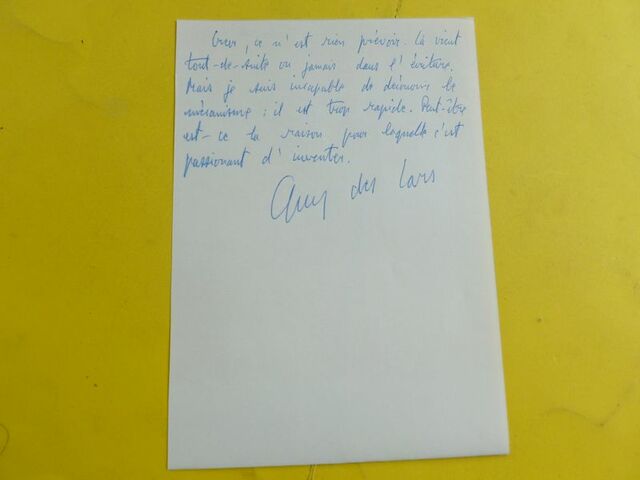 Créer, ce n'est rien prévoir. Cà vient
tout-de-suite ou jamais dans l'écriture.
Mais je suis incapable de découvrir le
mécanisme : il est trop rapide. Peut-être
est-ce la raison pour laquelle c'est
passionant d'inventer.
Guy des Cars